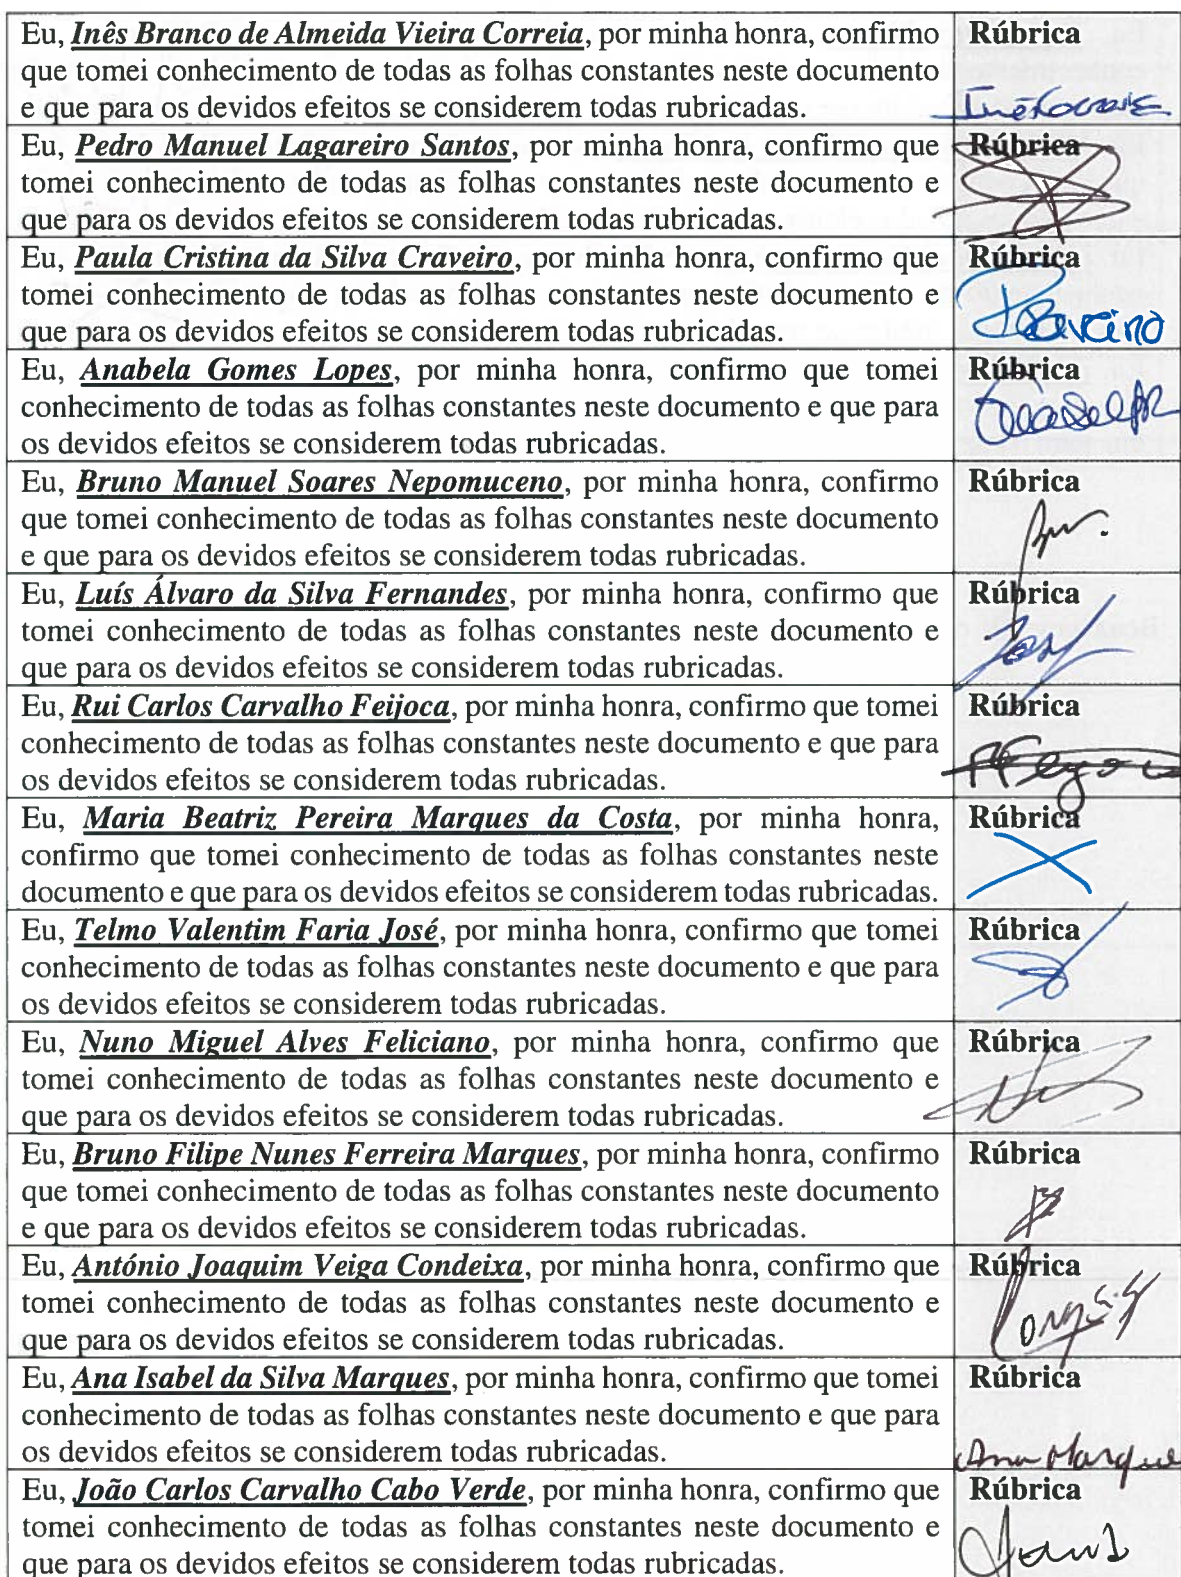 Eu, Inês Branco de Almeida Vieira Correia, por minha honra, confirmo
que tomei conhecimento de todas as folhas constantes neste documento
e que para os devidos efeitos se considerem todas rubricadas.
Rúbrica
Eu, Pedro Manuel Lagareiro Santos, por minha honra, confirmo que
tomei conhecimento de todas as folhas constantes neste documento e
que para os devidos efeitos se considerem todas rubricadas.
Rúbrica
Eu, Paula Cristina da Silva Craveiro, por minha honra, confirmo que
tomei conhecimento de todas as folhas constantes neste documento e
que para os devidos efeitos se considerem todas rubricadas.
Rúbrica
Eu, Anabela Gomes Lopes, por minha honra, confirmo que tomei
conhecimento de todas as folhas constantes neste documento e que para
os devidos efeitos se considerem todas rubricadas.
Rúbrica
Eu, Bruno Manuel Soares Nepomuceno, por minha honra, confirmo
que tomei conhecimento de todas as folhas constantes neste documento
e que para os devidos efeitos se considerem todas rubricadas.
Rúbrica
Eu, Luís Álvaro da Silva Fernandes, por minha honra, confirmo que
tomei conhecimento de todas as folhas constantes neste documento e
que para os devidos efeitos se considerem todas rubricadas.
Rúbrica
Eu, Rui Carlos Carvalho Feijoca, por minha honra, confirmo que tomei
conhecimento de todas as folhas constantes neste documento e que para
os devidos efeitos se considerem todas rubricadas.
Rúbrica
Eu, Maria Beatriz Pereira Marques da Costa, por minha honra,
confirmo que tomei conhecimento de todas as folhas constantes neste
documento e que para os devidos efeitos se considerem todas rubricadas.
Rúbrica
Eu, Telmo Valentim Faria José, por minha honra, confirmo que tomei
conhecimento de todas as folhas constantes neste documento e que para
os devidos efeitos se considerem todas rubricadas.
Rúbrica
Eu, Nuno Miguel Alves Feliciano, por minha honra, confirmo que
tomei conhecimento de todas as folhas constantes neste documento e
que para os devidos efeitos se considerem todas rubricadas.
Rúbrica
Eu, Bruno Filipe Nunes Ferreira Marques, por minha honra, confirmo
que tomei conhecimento de todas as folhas constantes neste documento
e que para os devidos efeitos se considerem todas rubricadas.
Rúbrica
Eu, António Joaquim Veiga Condeixa, por minha honra, confirmo que
tomei conhecimento de todas as folhas constantes neste documento e
que para os devidos efeitos se considerem todas rubricadas.
Rúbrica
Eu, Ana Isabel da Silva Marques, por minha honra, confirmo que tomei
conhecimento de todas as folhas constantes neste documento e que para
os devidos efeitos se considerem todas rubricadas.
Rúbrica
Ana Marques
Eu, João Carlos Carvalho Cabo Verde, por minha honra, confirmo que
tomei conhecimento de todas as folhas constantes neste documento e
que para os devidos efeitos se considerem todas rubricadas.
Rúbrica